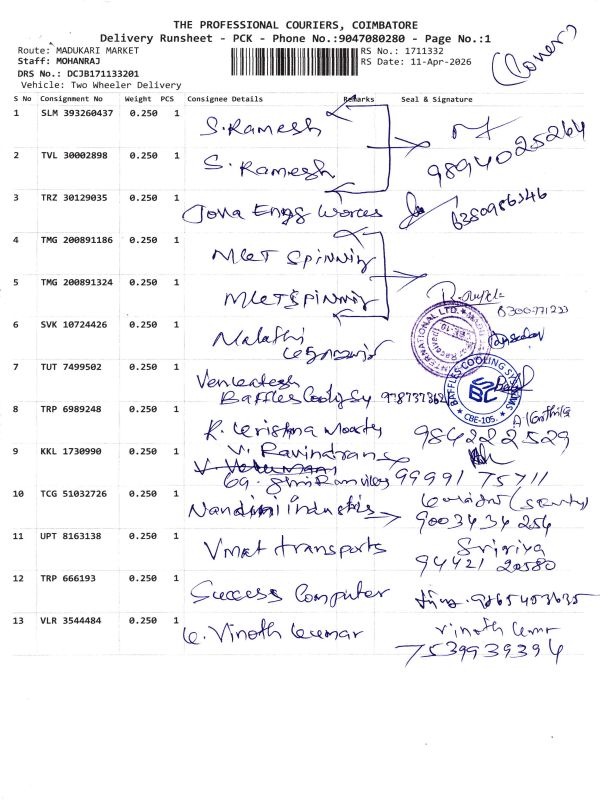 THE PROFESSIONAL COURIERS, COIMBATORE
Delivery Runsheet - PCK - Phone No.:9047080280 - Page No.:1
Route: MADUKARI MARKET
RS No.: 1711332
Staff: MOHANRAJ
RS Date: 11-Apr-2026
DRS No.: DCJB171133201
Vehicle: Two Wheeler Delivery
S No Consignment No Weight PCS Consignee Details Remarks Seal & Signature
1 SLM 393260437 0.250 1 S. Ramesh
98940 25264
2 TVL 30002898 0.250 1 S. Ramesh
3 TRZ 30129035 0.250 1 Engg 6380986346
4 TMG 200891186 0.250 1 Spinning
5 TMG 200891324 0.250 1 Spinning
6 SVK 10724426 0.250 1 Malathi
7 TUT 7499502 0.250 1 Venkatesh
Baffles Cooling Sy
BAFFLES COOLING SYSTEMS
CBE-105.
8 TRP 6989248 0.250 1 R. Krishna Moorthy 984222529
9 KKL 1730990 0.250 1 V. Ravindran
99991 75711
10 TCG 51032726 0.250 1 Nandini industris
9003434 254
11 UPT 8163138 0.250 1 Vmat transports
94421 20580
12 TRP 666193 0.250 1 Success Computer 9865453635
13 VLR 3544484 0.250 1 K. Vinoth Kumar
7539939394